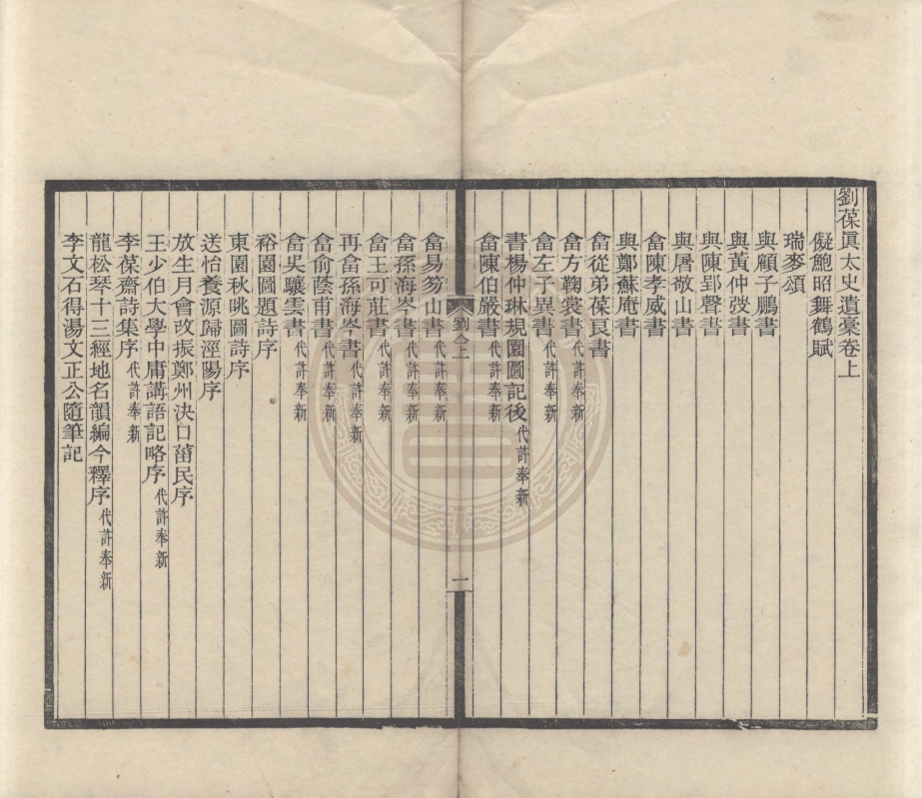 劉葆眞太史遺稾卷上
儗鮑昭舞鶴賦
瑞麥頌
與顧子鵬書
與黃仲弢書
與陳郢聲書
與屠敬山書
畣陳孝威書
與鄭蘇庵書
畣從弟葆良書
畣方鞠裳書代許奉新
畣左子異書代許奉新
書楊仲琳規園圖記後代許奉新
畣陳伯嚴書代許奉新
劉上
一
畣易笏山書代許奉新
畣孫海岑書代許奉新
畣王可莊書代許奉新
再畣孫海岑書代許奉新
畣俞蔭甫書代許奉新
畣吳驤雲書代許奉新
裕園圖題詩序
東園秋眺圖詩序
送怡養源歸涇陽序
放生月會改振鄭州決口菑民序
王少伯大學中庸講語記略序代許奉新
李葆齋詩集序代許奉新
龍松琴十三經地名韻編今釋序代許奉新
李文石得湯文正公隨筆記